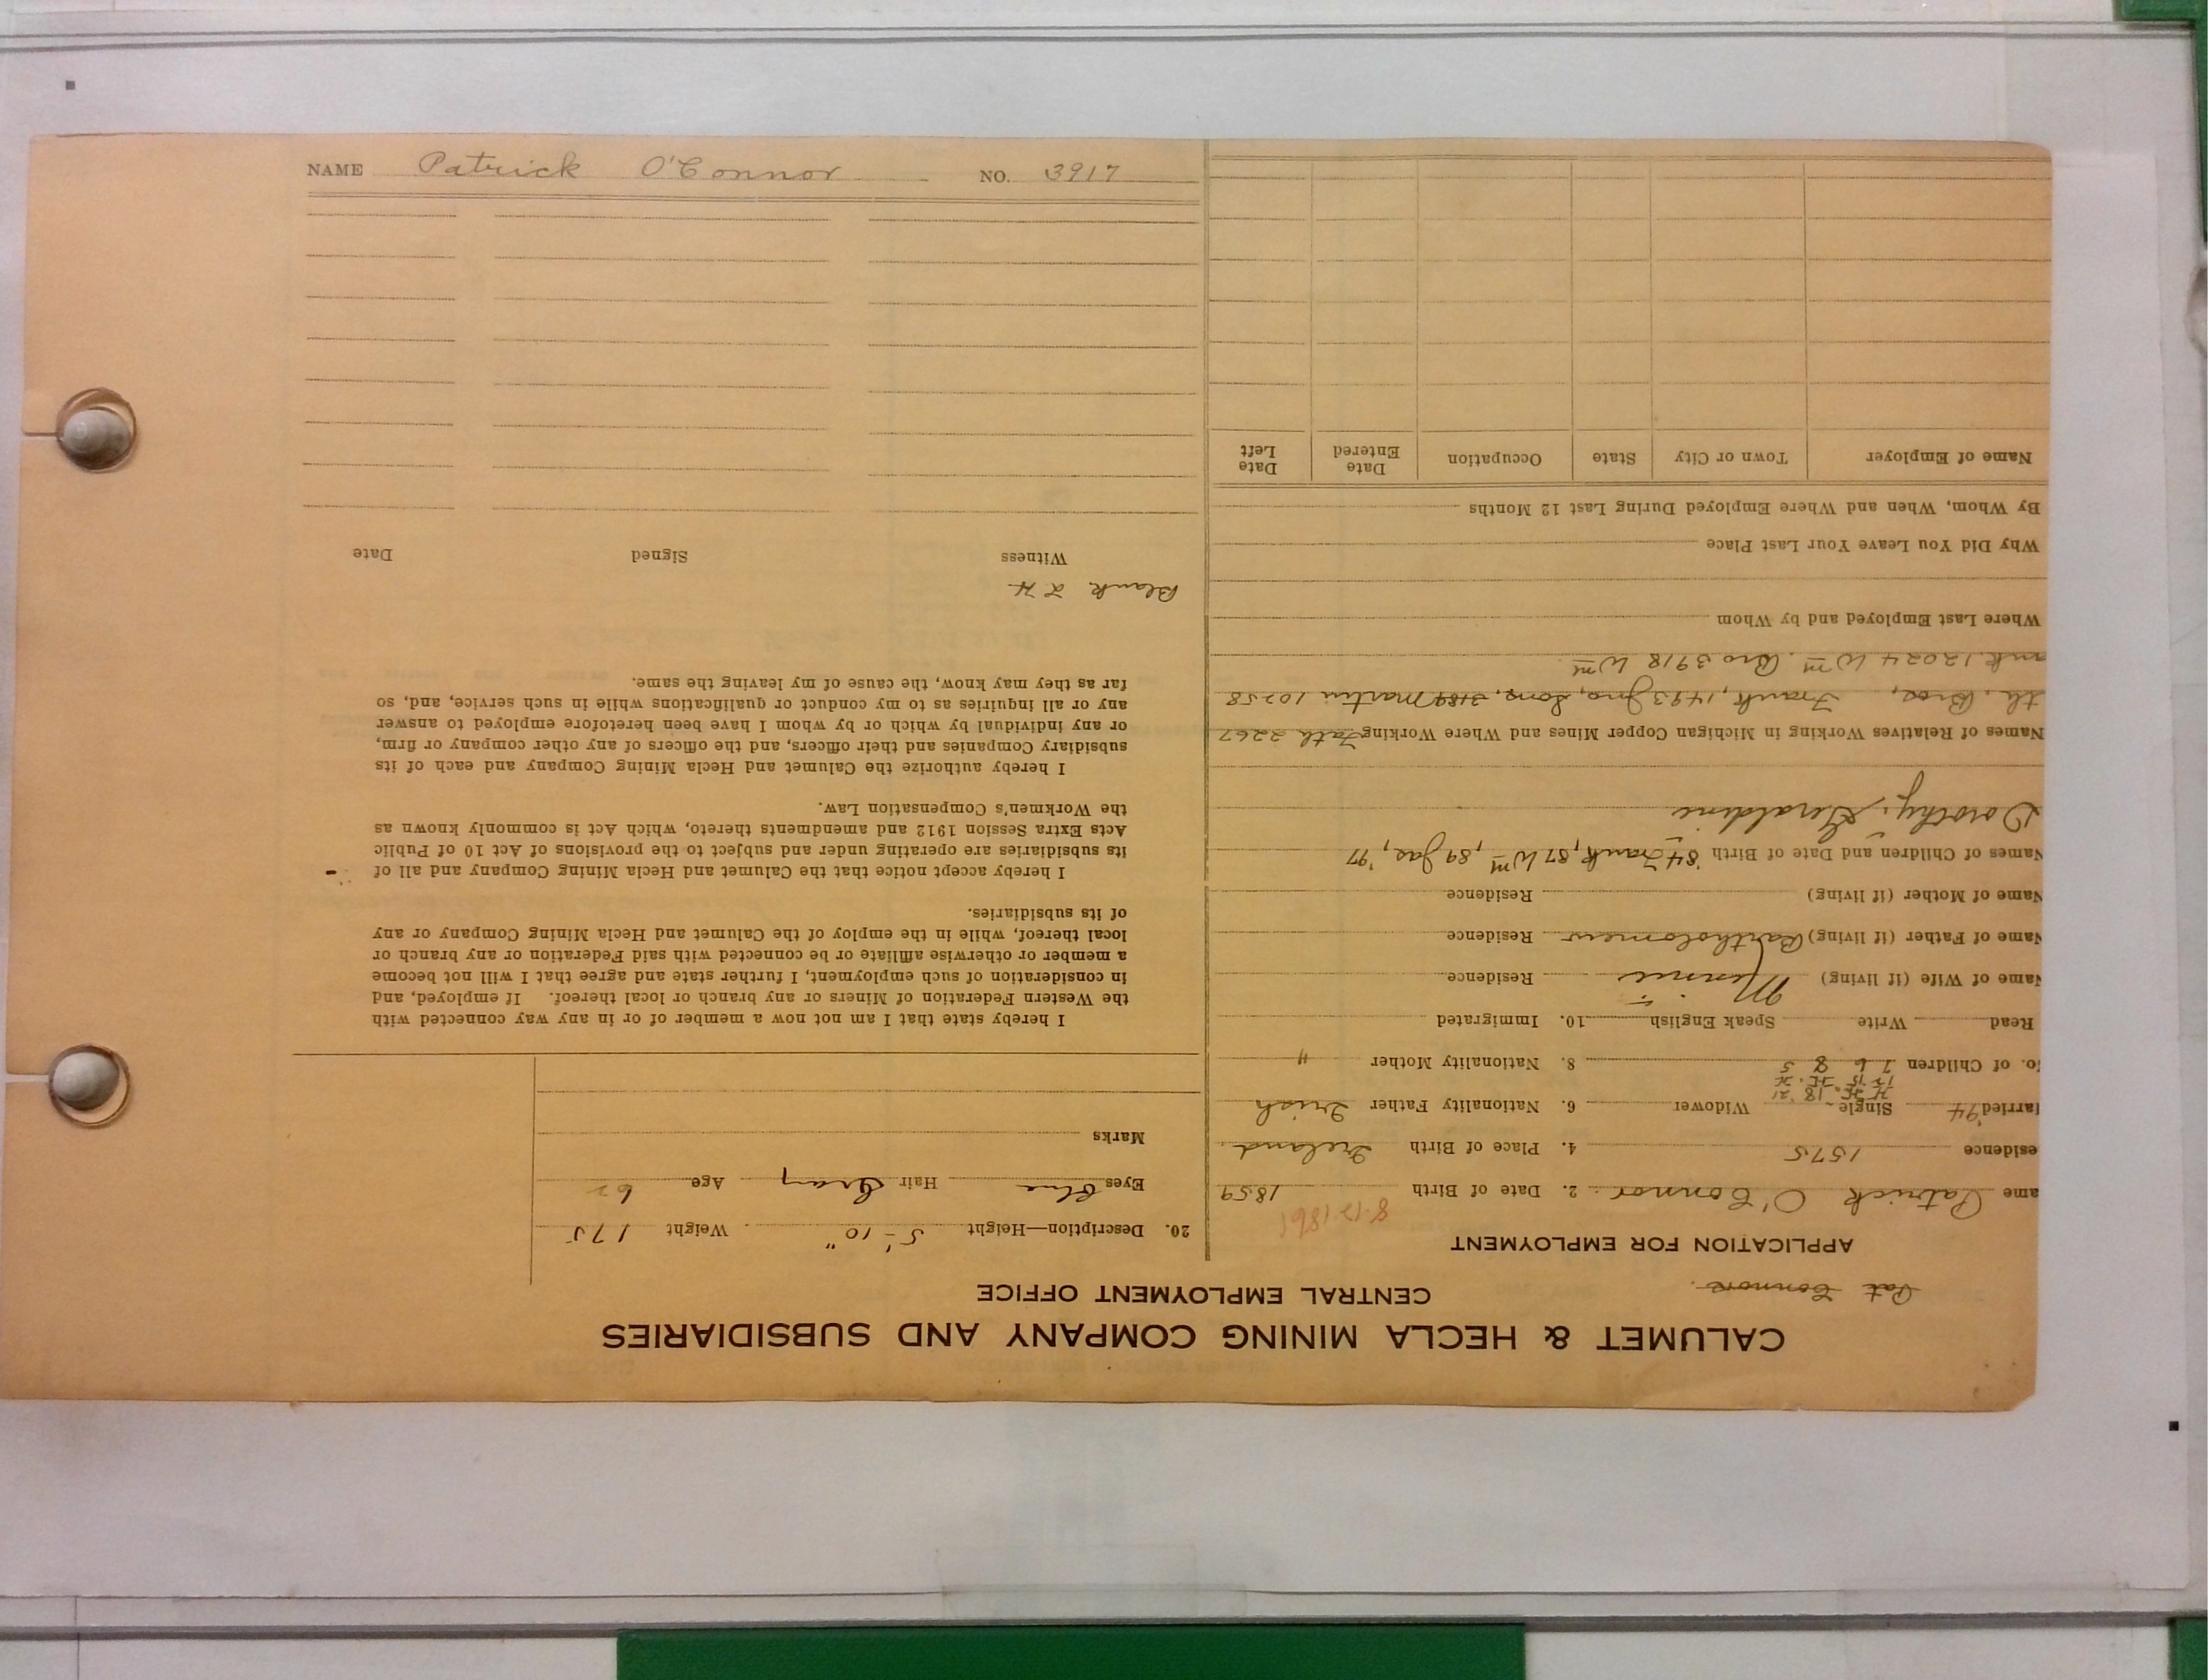 CALUMET & HECLA MINING COMPANY AND SUBSIDIARIES
CENTRAL EMPLOYMENT OFFICE
Pat Connors.
APPLICATION FOR EMPLOYMENT
8-12-1861
ame Patrick O'Connor. 2. Date of Birth 1859
esidence 1575 4. Place of Birth Ireland.
arried '94 Single Widower 6. Nationality Father Irish
18 '21
o. of Children 7 6 8 5 8. Nationality Mother "
Read Write Speak English 10. Immigrated
Name of Wife (if living) Minnie Residence
Name of Father (if living) Bartholomew Residence
Name of Mother (if living) Residence
Names of Children and Date of Birth '84 Frank, 87 Wm, 89 Jas, '97
Dorothy, Geraldine
Names of Relatives Working in Michigan Copper Mines and Where Working Fath 2267
th. Bros, Frank, 1493 Jno, Sons, 3189 Martin 10258
ank. 12024 Wm. Bro 3918 Wm
Where Last Employed and by Whom
Why Did You Leave Your Last Place
By Whom, When and Where Employed During Last 12 Months
Name of Employer Town or City State Occupation Date Entered Date Left
20. Description—Height 5'-10". Weight 175
Eyes Blue Hair Gray Age 62
Marks
I hereby state that I am not now a member of or in any way connected with
the Western Federation of Miners or any branch or local thereof. If employed, and
in consideration of such employment, I further state and agree that I will not become
a member or otherwise affiliate or be connected with said Federation or any branch or
local thereof, while in the employ of the Calumet and Hecla Mining Company or any
of its subsidiaries.
I hereby accept notice that the Calumet and Hecla Mining Company and all of
its subsidiaries are operating under and subject to the provisions of Act 10 of Public
Acts Extra Session 1912 and amendments thereto, which Act is commonly known as
the Workmen's Compensation Law.
I hereby authorize the Calumet and Hecla Mining Company and each of its
subsidiary Companies and their officers, and the officers of any other company or firm,
or any individual by which or by whom I have been heretofore employed to answer
any or all inquiries as to my conduct or qualifications while in such service, and, so
far as they may know, the cause of my leaving the same.
Blank
Witness Signed Date
NAME Patrick O'Connor NO. 3917